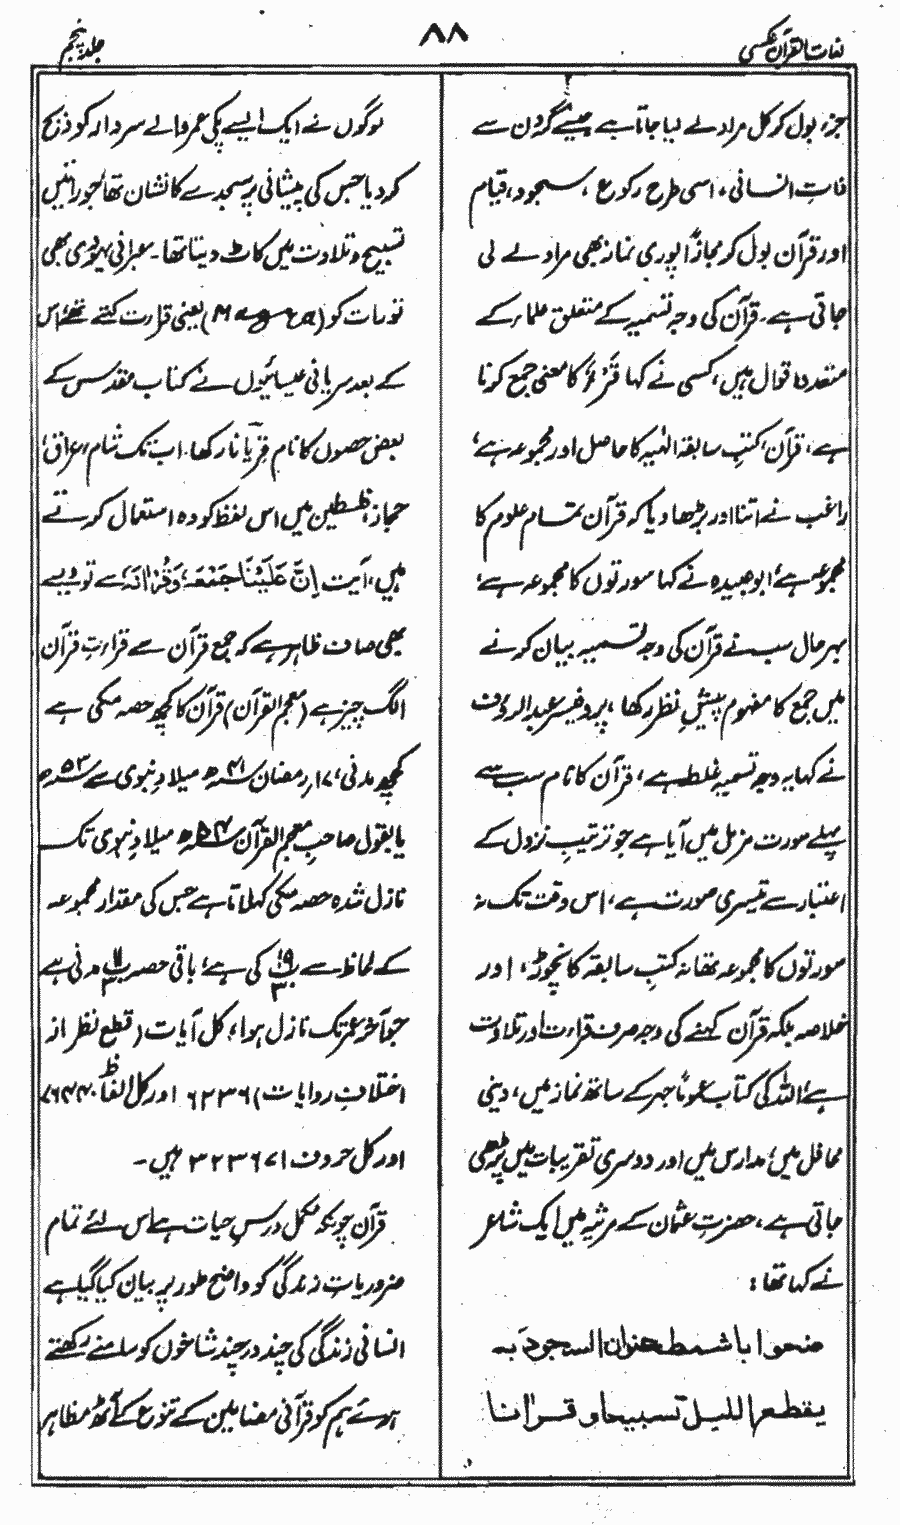 لغات القرآن عکسی
۸۸
جلد پنجم
جزء بول کر کل مراد لے لیا جاتا ہے جیسے گردن سے
ذاتِ انسانی، اسی طرح رکوع، سجود، قیام
اور قرآن بول کر مجازًا پوری نماز بھی مراد لے لی
جاتی ہے۔ قرآن کی وجہ تسمیہ کے متعلق علماء کے
متعدد اقوال ہیں، کسی نے کہا قَرْءٌ کا معنی جمع کرنا
ہے، قرآن، کتبِ سابقہ الٰہیہ کا حاصل اور مجموعہ ہے،
راغب نے اتنا اور بڑھا دیا کہ قرآن تمام علوم کا
مجموعہ ہے، ابو عبیدہ نے کہا سورتوں کا مجموعہ ہے،
بہر حال سب نے قرآن کی وجہ تسمیہ بیان کرنے
میں جمع کا مفہوم پیشِ نظر رکھا، پروفیسر عبدالرؤف
نے کہا یہ وجہ تسمیہ غلط ہے، قرآن کا نام سب سے
پہلے سورت مزمل میں آیا ہے جو ترتیبِ نزول کے
اعتبار سے تیسری سورت ہے، اس وقت تک نہ
سورتوں کا مجموعہ تھا نہ کتبِ سابقہ کا نچوڑ، اور
خلاصہ بلکہ قرآن کہنے کی وجہ صرف قراءت اور تلاوت
ہے، اللہ کی کتاب عمومًا جہر کے ساتھ نماز میں، دینی
محافل میں، مدارس میں اور دوسری تقریبات میں پڑھی
جاتی ہے، حضرت عثمان کے مرثیہ میں ایک شاعر
نے کہا تھا:
ضحوا باشمط عنوان السجود به
يقطع الليل تسبيحا و قرانا
لوگوں نے ایک ایسے پکی عمر والے سردار کو ذبح
کر دیا جس کی پیشانی پر سجدے کا نشان تھا جو راتیں
تسبیح و تلاوت میں کاٹ دیتا تھا۔ عبرانی یہودی بھی
تورات کو () یعنی قراءت کہتے تھے، اس
کے بعد سریانی عیسائیوں نے کتاب مقدس کے
بعض حصوں کا نام قریانا رکھا۔ اب تک شام، عراق،
حجاز، فلسطین میں اس لفظ کو وہ استعمال کرتے
ہیں، آیت اِنَّ عَلَيْنَا جَمْعَهٗ وَقُرْاٰنَهٗ سے تو ویسے
بھی صاف ظاہر ہے کہ جمع قرآن سے قراءتِ قرآن
الگ چیز ہے (معجم القرآن) قرآن کا کچھ حصہ مکی ہے
کچھ مدنی، ۱۷ رمضان ۴۱ھ میلادِ نبوی سے ۵۳ھ
یا بقول صاحبِ معجم القرآن ۵۴ھ میلادِ نبوی تک
نازل شدہ حصہ مکی کہلاتا ہے جس کی مقدار مجموعہ
کے لحاظ سے ۱۹/۳ کی ہے، باقی حصہ ۱۱/۳ مدنی ہے
جو آخر عمر تک نازل ہوا، کل آیات (قطع نظر از
اختلافِ روایات) ۶۲۳۶ اور کل الفاظ ۷۶۴۴۰
اور کل حروف ۳۲۳۶۷۱ ہیں۔
قرآن چونکہ مکمل درسِ حیات ہے اس لئے تمام
ضروریاتِ زندگی کو واضح طور پر بیان کیا گیا ہے
انسانی زندگی کی چند در چند شاخوں کو سامنے رکھتے
ہوئے ہم کو قرآنی مضامین کے تنوع کے آٹھ مظاہر